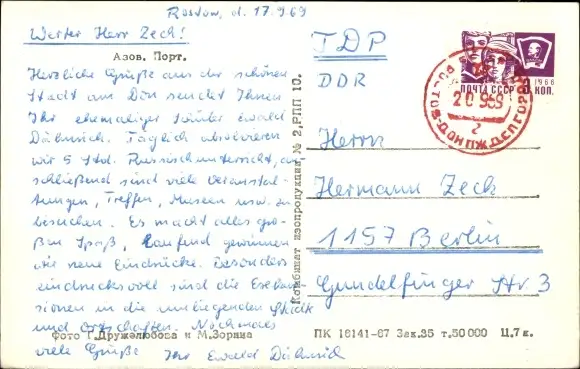 Rostow, d. 17.9.69
Werter Herr Zech!
Азов. Порт.
Herzliche Grüße aus der schönen
Stadt am Don sendet Ihnen
Ihr ehemaliger Schüler Ewald
Dähnrich. Täglich absolvieren
wir 5 Std. Russischunterricht, an-
schließend sind viele Veranstal-
tungen, Treffen, Museen usw. zu
besuchen. Es macht alles gro-
ßen Spaß, laufend gewinnen
wir neue Eindrücke. Besonders
eindrucksvoll sind die Exkur-
sionen in die umliegenden Städte
und Ortschaften. Nochmals
Фото Г. Дружелюбова и М. Зорина
viele Grüße Ihr Ewald Dähnrich
Комбинат изопродукции, № 2, РПП 10.
TDP
DDR
Herrn
Hermann Zech
1157 Berlin
Gundelfinger Str 3
ПК 16141-67 Зак. 35 т. 50 000 Ц. 7 к.
1966
ПОЧТА СССР КОП.
РОСТОВ-ДОН
20 969
2